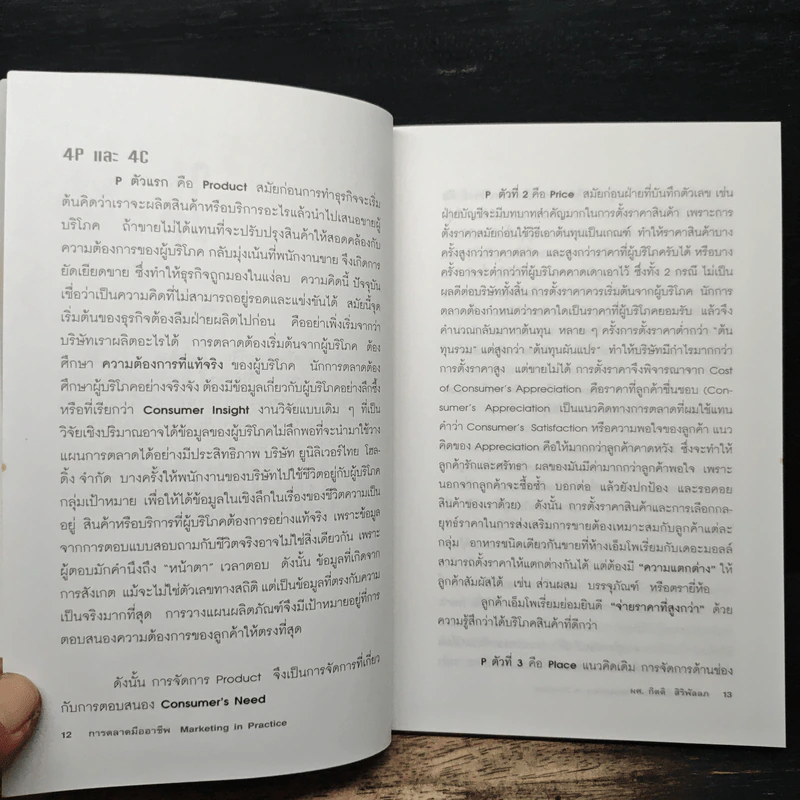 4P และ 4C
P ตัวแรก คือ Product สมัยก่อนการทำธุรกิจจะเริ่ม
ต้นคิดว่าเราจะผลิตสินค้าหรือบริการอะไรแล้วนำไปเสนอขายผู้
บริโภค ถ้าขายไม่ได้แทนที่จะปรับปรุงสินค้าให้สอดคล้องกับ
ความต้องการของผู้บริโภค กลับมุ่งเน้นที่พนักงานขาย จึงเกิดการ
ยัดเยียดขาย ซึ่งทำให้ธุรกิจถูกมองในแง่ลบ ความคิดนี้ ปัจจุบัน
เชื่อว่าเป็นความคิดที่ไม่สามารถอยู่รอดและแข่งขันได้ สมัยนี้จุด
เริ่มต้นของธุรกิจต้องลืมฝ่ายผลิตไปก่อน คืออย่าเพิ่งเริ่มจากว่า
บริษัทเราผลิตอะไรได้ การตลาดต้องเริ่มต้นจากผู้บริโภค ต้อง
ศึกษา ความต้องการที่แท้จริง ของผู้บริโภค นักการตลาดต้อง
ศึกษาผู้บริโภคอย่างจริงจัง ต้องมีข้อมูลเกี่ยวกับผู้บริโภคอย่างลึกซึ้ง
หรือที่เรียกว่า Consumer Insight งานวิจัยแบบเดิม ๆ ที่เป็น
วิจัยเชิงปริมาณอาจได้ข้อมูลของผู้บริโภคไม่ลึกพอที่จะนำมาใช้วาง
แผนการตลาดได้อย่างมีประสิทธิภาพ บริษัท ยูนิลีเวอร์ไทย โฮล-
ดิ้ง จำกัด บางครั้งให้พนักงานของบริษัทไปใช้ชีวิตอยู่กับผู้บริโภค
กลุ่มเป้าหมาย เพื่อให้ได้ข้อมูลในเชิงลึกในเรื่องของชีวิตความเป็น
อยู่ สินค้าหรือบริการที่ผู้บริโภคต้องการอย่างแท้จริง เพราะข้อมูล
จากการตอบแบบสอบถามกับชีวิตจริงอาจไม่ใช่สิ่งเดียวกัน เพราะ
ผู้ตอบมักคำนึงถึง "หน้าตา" เวลาตอบ ดังนั้น ข้อมูลที่เกิดจาก
การสังเกต แม้จะไม่ใช่ตัวเลขทางสถิติ แต่เป็นข้อมูลที่ตรงกับความ
เป็นจริงมากที่สุด การวางแผนผลิตภัณฑ์จึงมีเป้าหมายอยู่ที่การ
ตอบสนองความต้องการของลูกค้าให้ตรงที่สุด
ดังนั้น การจัดการ Product จึงเป็นการจัดการที่เกี่ยว
กับการตอบสนอง Consumer's Need
12 การตลาดมืออาชีพ Marketing in Practice
P ตัวที่ 2 คือ Price สมัยก่อนฝ่ายที่บันทึกตัวเลข เช่น
ฝ่ายบัญชีจะมีบทบาทสำคัญมากในการตั้งราคาสินค้า เพราะการ
ตั้งราคาสมัยก่อนใช้วิธีเอาต้นทุนเป็นเกณฑ์ ทำให้ราคาสินค้าบาง
ครั้งสูงกว่าราคาตลาด และสูงกว่าราคาที่ผู้บริโภครับได้ หรือบาง
ครั้งอาจจะต่ำกว่าที่ผู้บริโภคคาดเดาเอาไว้ ซึ่งทั้ง 2 กรณี ไม่เป็น
ผลดีต่อบริษัททั้งสิ้น การตั้งราคาควรเริ่มต้นจากผู้บริโภค นักการ
ตลาดต้องกำหนดว่าราคาใดเป็นราคาที่ผู้บริโภคยอมรับ แล้วจึง
คำนวณกลับมาหาต้นทุน หลาย ๆ ครั้งการตั้งราคาต่ำกว่า "ต้น
ทุนรวม" แต่สูงกว่า "ต้นทุนผันแปร" ทำให้บริษัทมีกำไรมากกว่า
การตั้งราคาสูง แต่ขายไม่ได้ การตั้งราคาจึงพิจารณาจาก Cost
of Consumer's Appreciation คือราคาที่ลูกค้าชื่นชอบ (Con-
sumer's Appreciation เป็นแนวคิดทางการตลาดที่ผมใช้แทน
คำว่า Consumer's Satisfaction หรือความพอใจของลูกค้า แนว
คิดของ Appreciation คือให้มากกว่าลูกค้าคาดหวัง ซึ่งจะทำให้
ลูกค้ารักและศรัทธา ผลของมันมีค่ามากกว่าลูกค้าพอใจ เพราะ
นอกจากลูกค้าจะซื้อซ้ำ บอกต่อ แล้วยังปกป้อง และรอคอย
สินค้าของเราด้วย) ดังนั้น การตั้งราคาสินค้าและการเลือกกล-
ยุทธ์ราคาในการส่งเสริมการขายต้องเหมาะสมกับลูกค้าแต่ละ
กลุ่ม อาหารชนิดเดียวกันขายที่ห้างเอ็มโพเรียมกับเดอะมอลล์
สามารถตั้งราคาให้แตกต่างกันได้ แต่ต้องมี "ความแตกต่าง" ให้
ลูกค้าสัมผัสได้ เช่น ส่วนผสม บรรจุภัณฑ์ หรือตรายี่ห้อ
ลูกค้าเอ็มโพเรียมย่อมยินดี "จ่ายราคาที่สูงกว่า" ด้วย
ความรู้สึกว่าได้บริโภคสินค้าที่ดีกว่า
P ตัวที่ 3 คือ Place แนวคิดเดิม การจัดการด้านช่อง
ผศ. กิตติ สิริพัลลภ 13